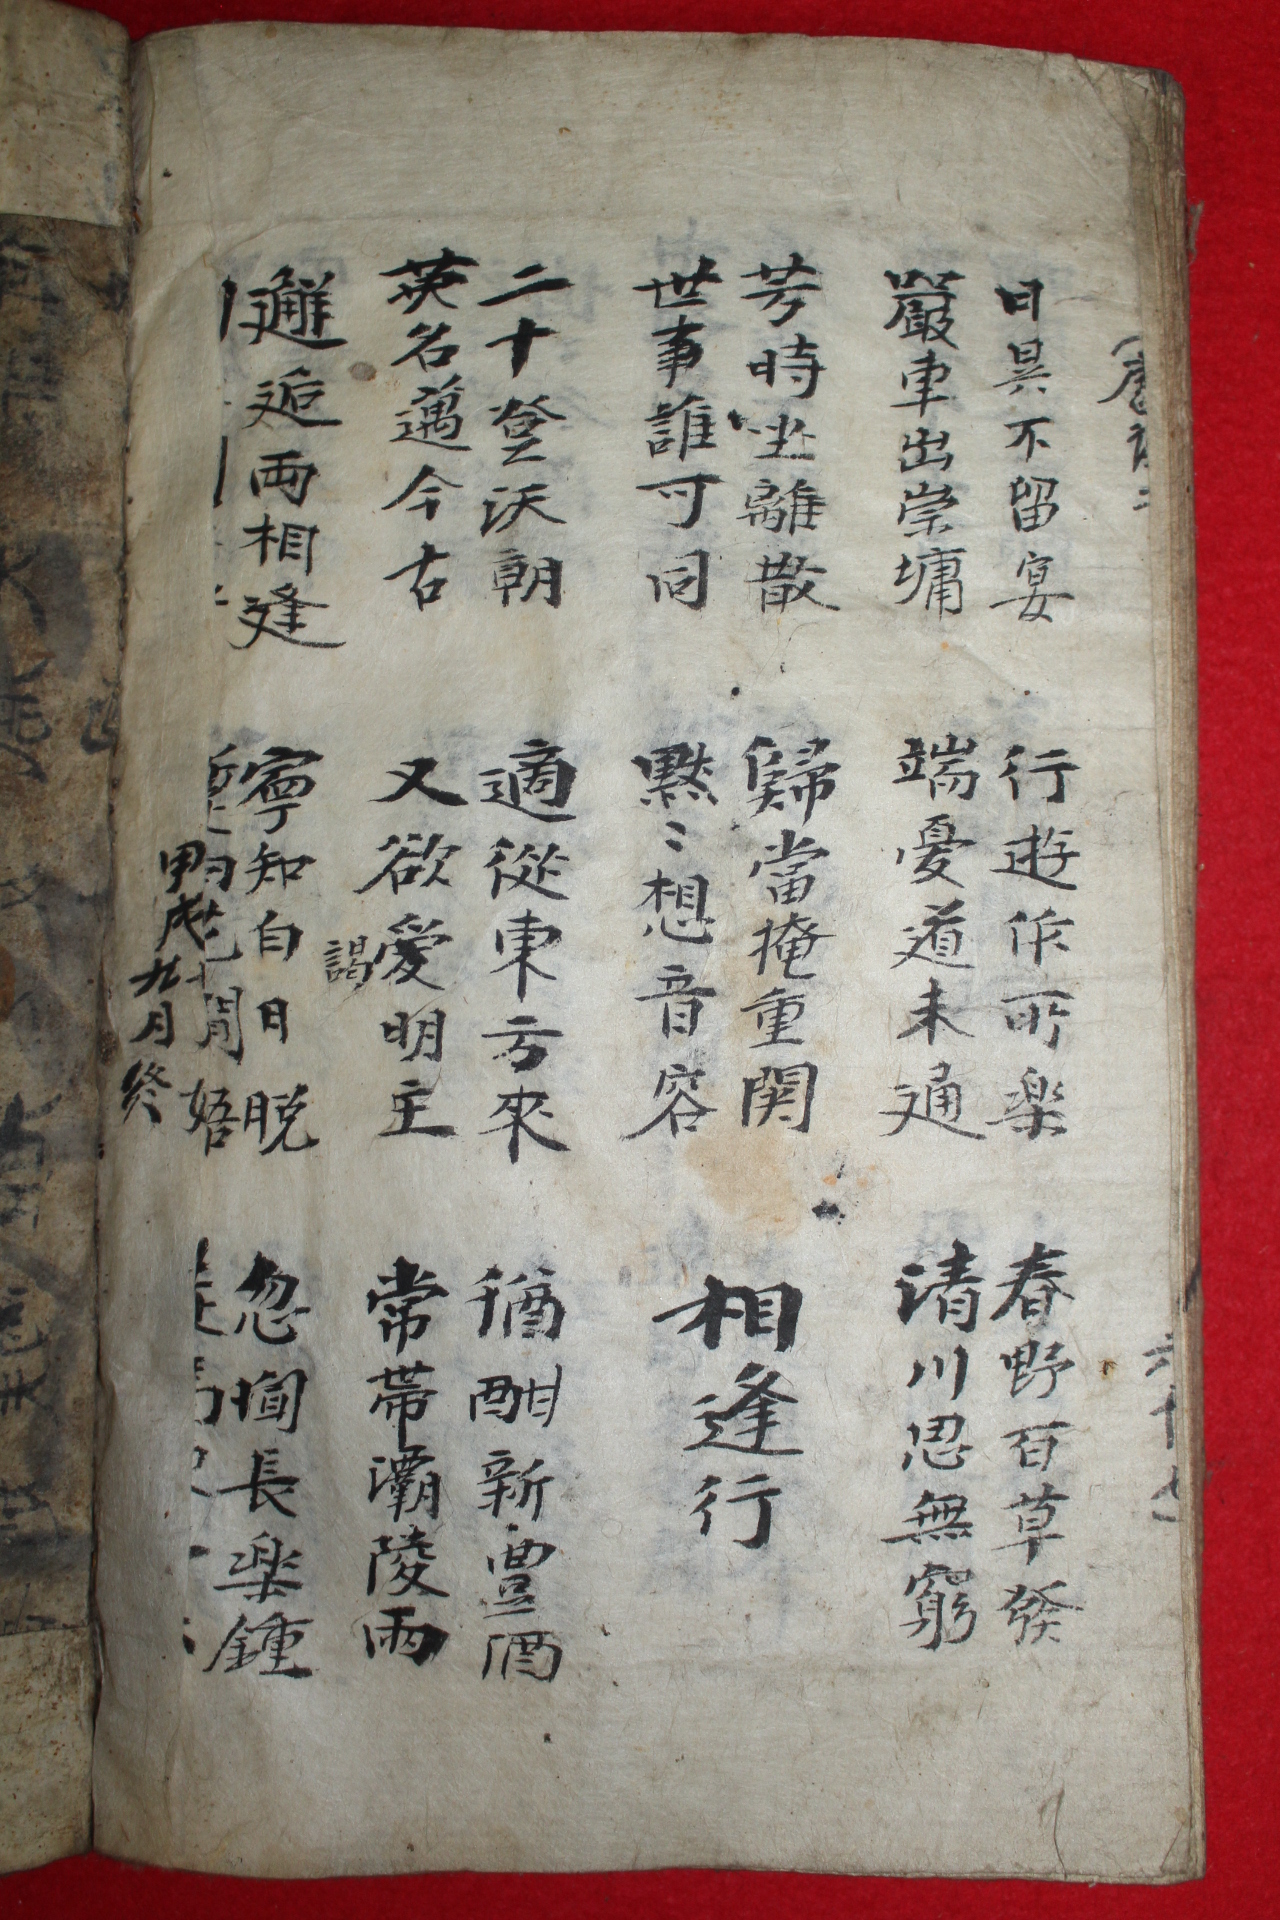 唐詩二
六十七
日昃不留宴
嚴車出崇墉
行遊作所樂
端憂道未通
春野百草發
清川思無窮
芳時坐離散
世事誰可同
歸當掩重関
黙〻想音容
相逢行
二十登沃朝
英名邁今古
適從東方來
又欲愛明主
謁
猶酣新豊酒
常帶灞陵雨
邂逅両相逢
寧知白日脫
間悟
忽聞長楽鍾
甲戌九月終